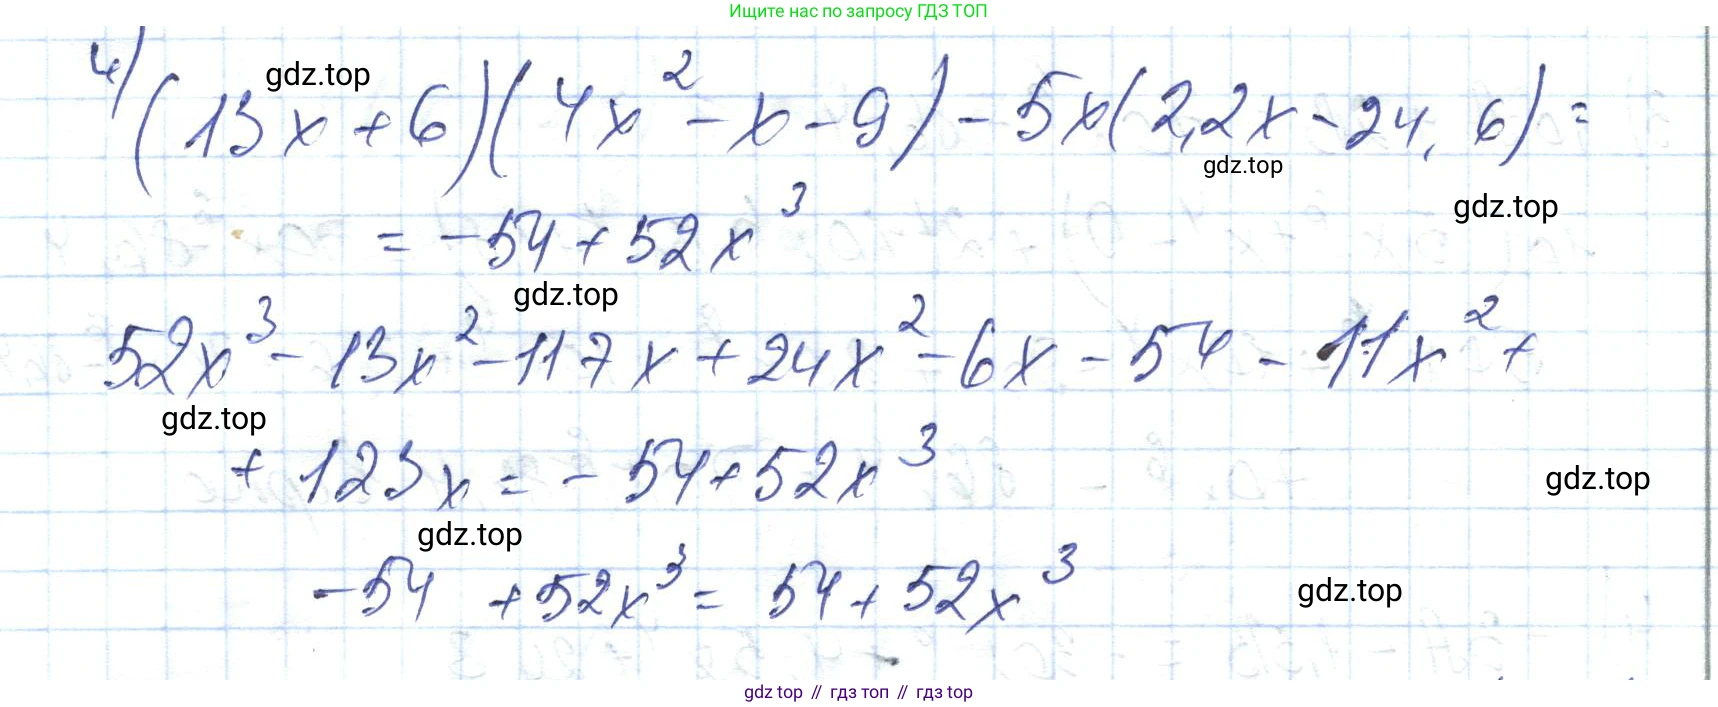 Ищите нас по запросу ГДЗ ТОП
4) (13x + 6)(4x² - x - 9) - 5x(2,2x - 24,6) =
gdz.top
gdz.top
gdz.top
= -54 + 52x³
gdz.top
52x³ - 13x² - 117x + 24x² - 6x - 54 - 11x² +
gdz.top
+ 123x = - 54 + 52x³
gdz.top
gdz.top
-54 + 52x³ = 54 + 52x³
gdz.top
gdz top // гдз топ // гдз top